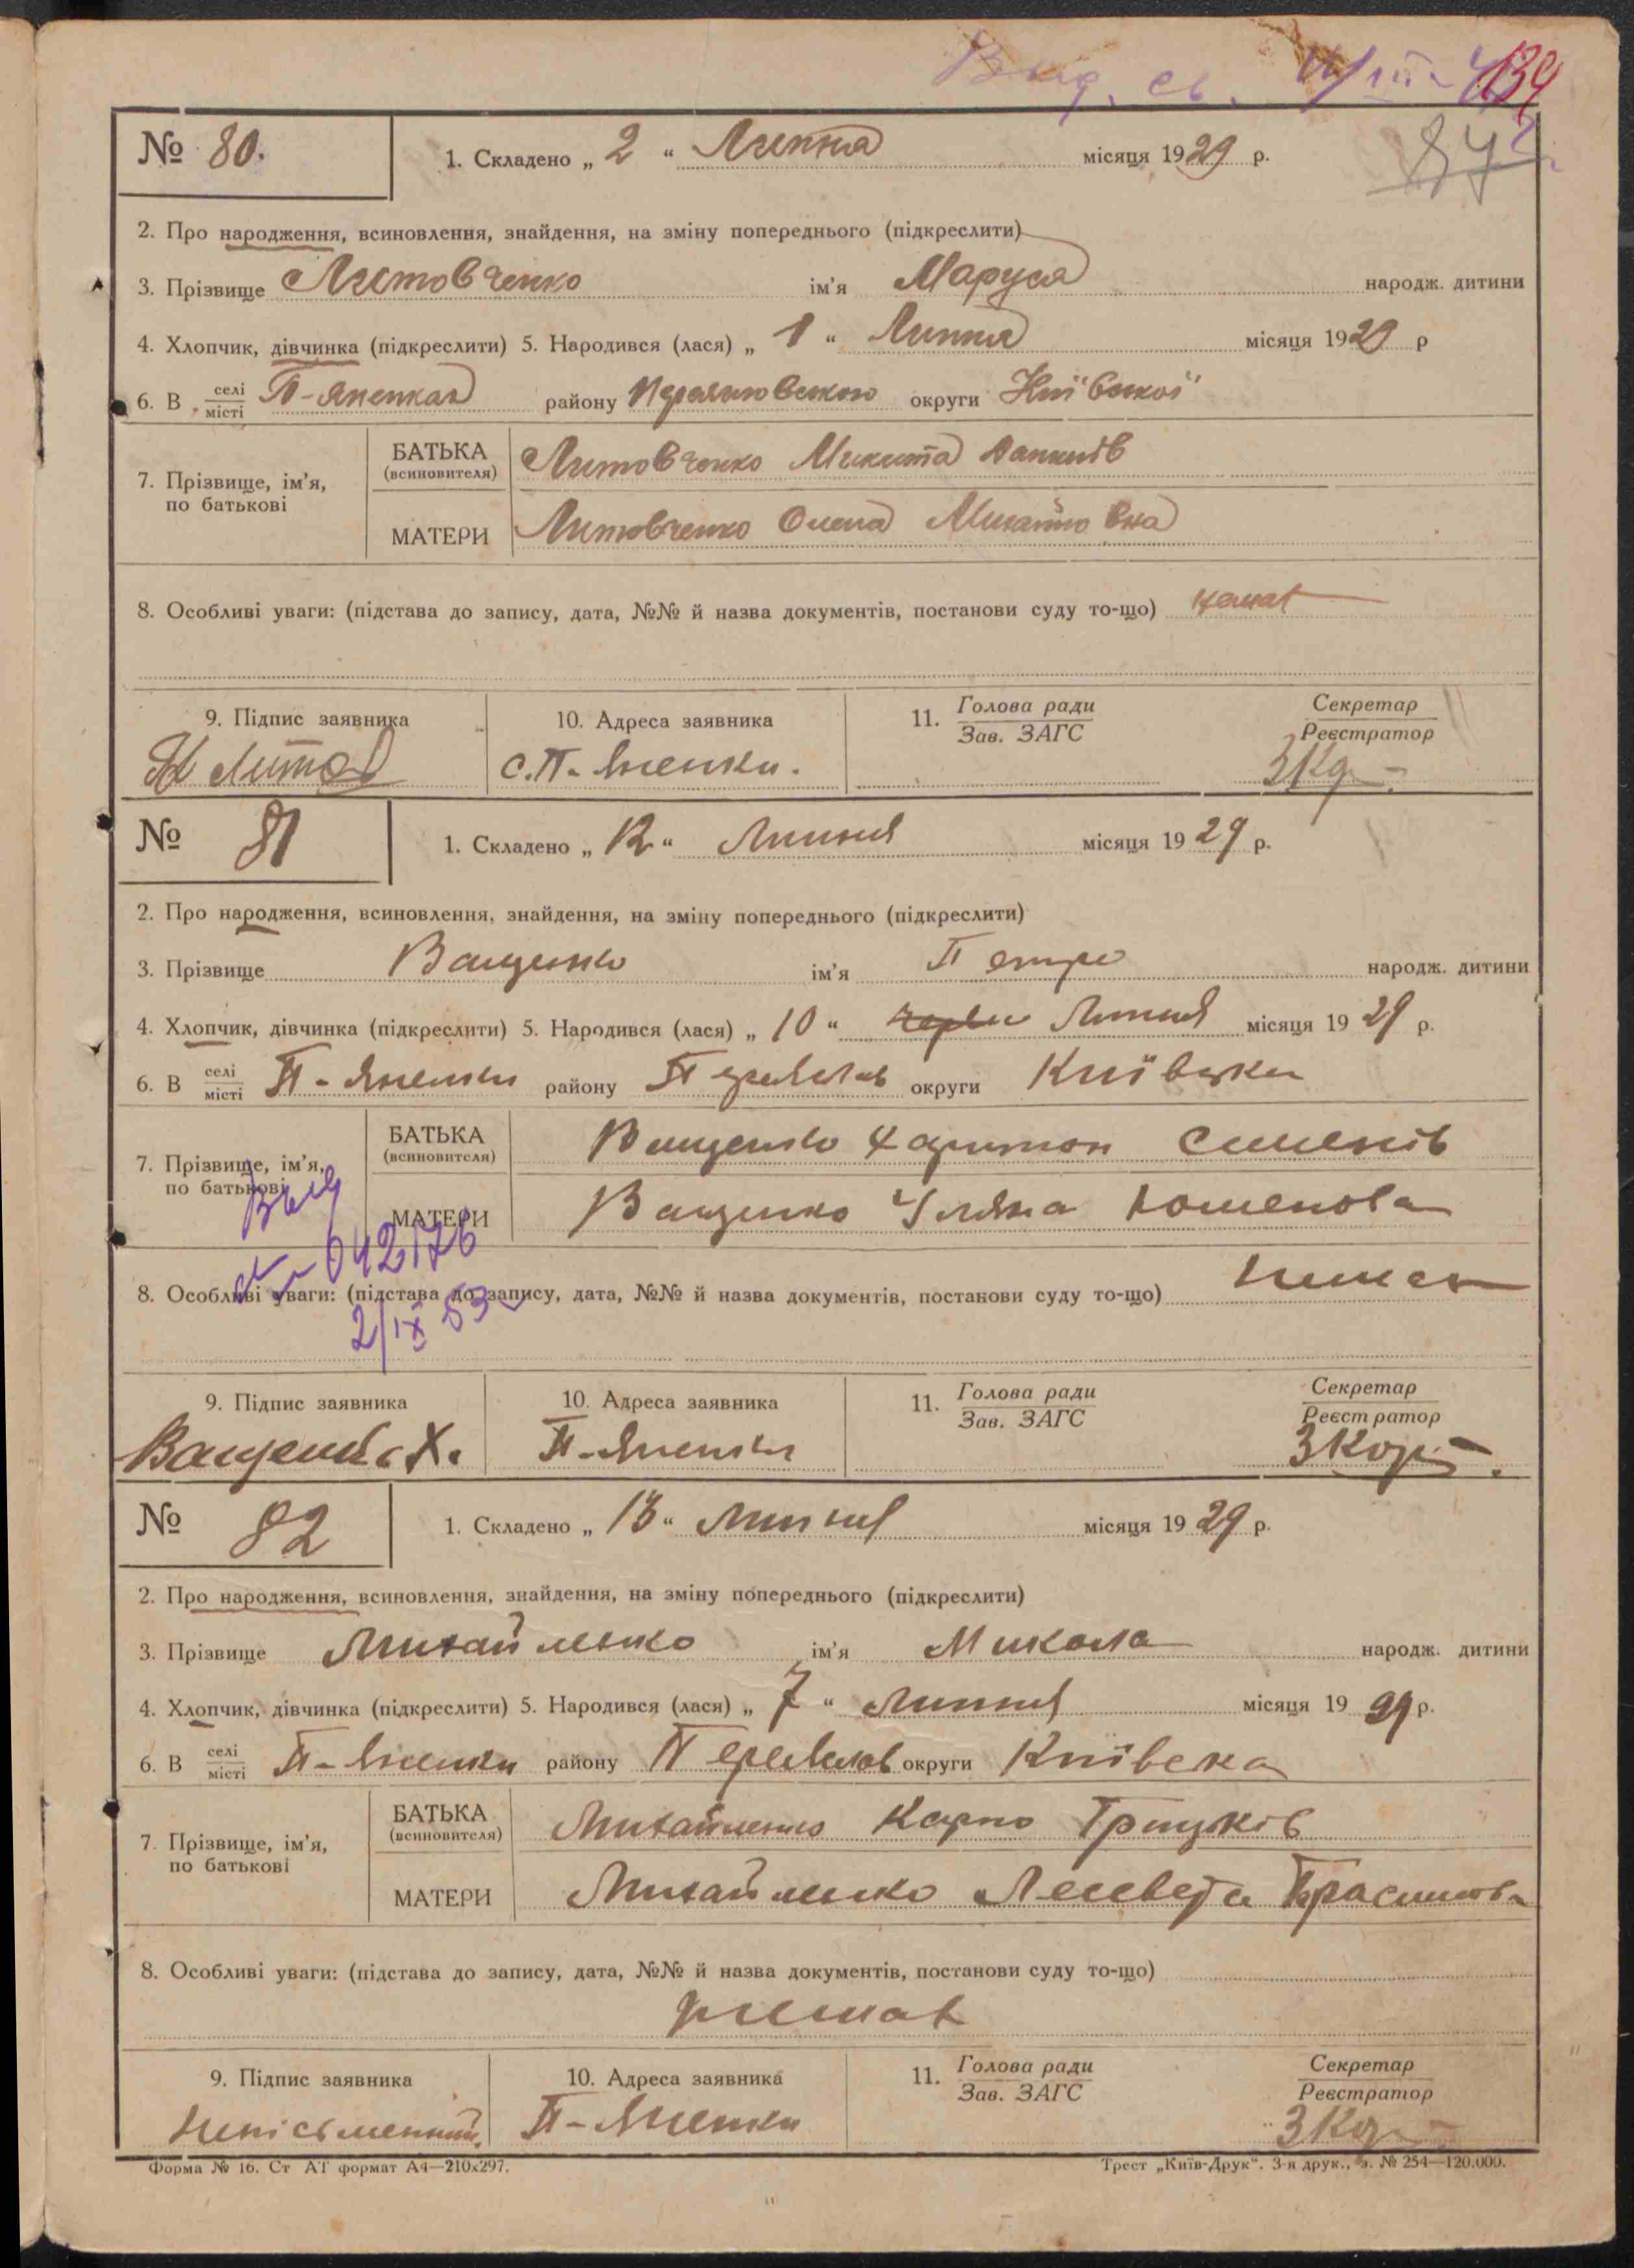 Вид. св.
139
№ 80. 1. Складено „ 2 “ Липня місяця 1929 р.
2. Про народження, всиновлення, знайдення, на зміну попереднього (підкреслити)
3. Прізвище Литовченко ім'я Маруся народж. дитини
4. Хлопчик, дівчинка (підкреслити) 5. Народився (лася) „ 1 “ Липня місяця 1929 р
6. В селі місті П-Яненках району округи Київської
7. Прізвище, ім'я, по батькові
БАТЬКА (всиновителя) Литовченко Микита
МАТЕРИ Литовченко Олена Михайловна
8. Особливі уваги: (підстава до запису, дата, №№ й назва документів, постанови суду то-що) немає
9. Підпис заявника 10. Адреса заявника 11. Голова ради Зав. ЗАГС Секретар Реєстратор
с. П-Яненки.
№ 81 1. Складено „ 12 “ Липня місяця 1929 р.
2. Про народження, всиновлення, знайдення, на зміну попереднього (підкреслити)
3. Прізвище Ващенко ім'я Петро народж. дитини
4. Хлопчик, дівчинка (підкреслити) 5. Народився (лася) „ 10 “ Липня місяця 1929 р.
6. В селі місті П-Яненки району Переяслав округи Київська
7. Прізвище, ім'я, по батькові
БАТЬКА (всиновителя) Ващенко Харитон Семенів
МАТЕРИ Ващенко Уляна
Выд
042176
8. Особливі уваги: (підстава до запису, дата, №№ й назва документів, постанови суду то-що) немає
2/IX 53
9. Підпис заявника 10. Адреса заявника 11. Голова ради Зав. ЗАГС Секретар Реєстратор
Ващенко Х. П-Яненки
№ 82 1. Складено „ 13 “ Липня місяця 1929 р.
2. Про народження, всиновлення, знайдення, на зміну попереднього (підкреслити)
3. Прізвище Михайленко ім'я Микола народж. дитини
4. Хлопчик, дівчинка (підкреслити) 5. Народився (лася) „ 7 “ Липня місяця 1929 р.
6. В селі місті П-Яненки району Переяслав округи Київська
7. Прізвище, ім'я, по батькові
БАТЬКА (всиновителя) Михайленко Карпо Грицьків
МАТЕРИ Михайленко
8. Особливі уваги: (підстава до запису, дата, №№ й назва документів, постанови суду то-що)
немає
9. Підпис заявника 10. Адреса заявника 11. Голова ради Зав. ЗАГС Секретар Реєстратор
Неписьменний. П-Яненки
Форма № 16. Ст АТ формат А4—210x297. Трест „Київ-Друк“. 3-я друк., з. № 254—120.000.